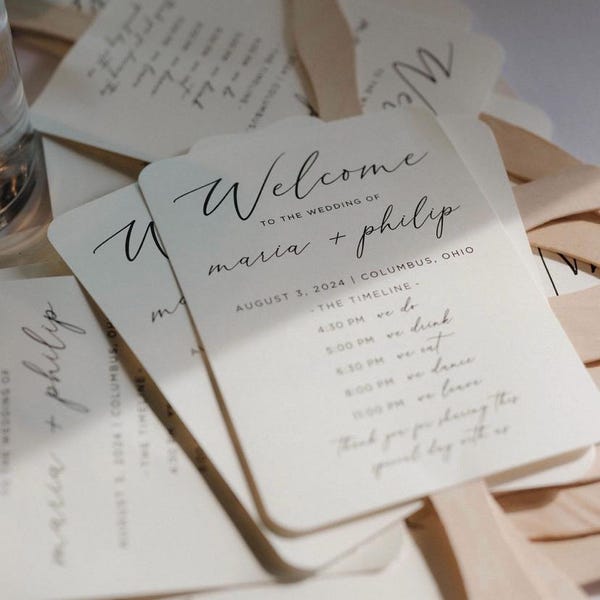 Welcome
TO THE WEDDING OF
maria + philip
AUGUST 3, 2024 | COLUMBUS, OHIO
- THE TIMELINE -
4:30 PM we do
5:00 PM we drink
6:30 PM we eat
8:00 PM we dance
11:00 PM we leave
thank you for sharing this
special day with us
W
ma
maria + philip
TO THE WEDDING OF
AUGUST 3, 2024 | COLUMBUS, OH
- THE TIMELINE -
We